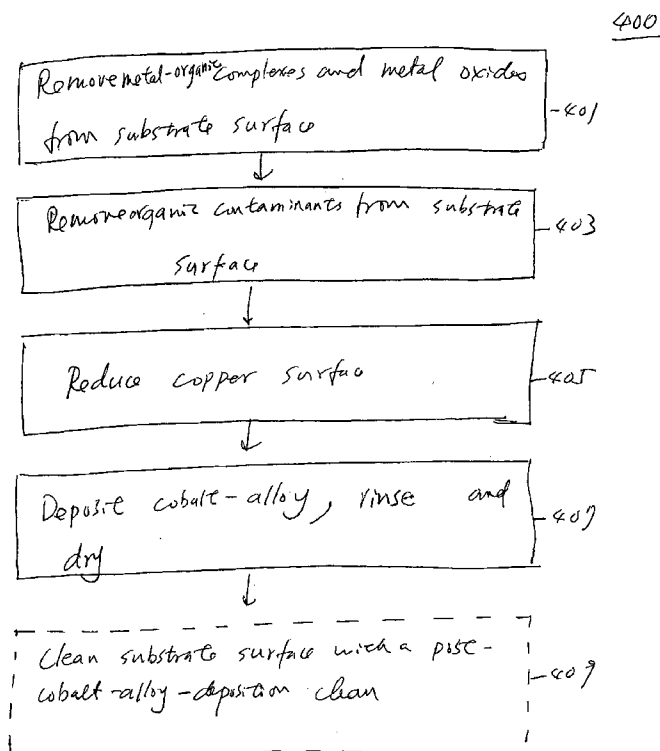 400
Remove metal-organic complexes and metal oxides
from substrate surface
401
Remove organic contaminants from substrate
surface
403
Reduce copper surface
405
Deposit cobalt-alloy, rinse and
dry
407
Clean substrate surface with a post-
cobalt-alloy-deposition clean
409